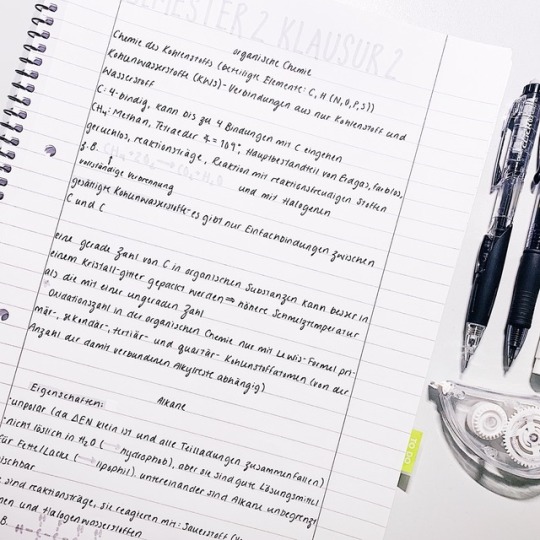 SEMESTER 2 KLAUSUR 2
organische Chemie
Chemie des Kohlenstoffs (beteiligte Elemente: C, H (N, O, P, S))
Kohlenwasserstoffe (KWS)- Verbindungen aus nur Kohlenstoff und
Wasserstoff
C: 4-bindig, kann bis zu 4 Bindungen mit C eingehen
CH4: Methan, Tetraeder ∡ = 109°, Hauptbestandteil von Erdgas, farblos,
geruchlos, reaktionsträge, Reaktion mit reaktionsfreudigen Stoffen
z.B. CH4 + 2O2 → CO2 + H2O und mit Halogenen
vollständige Verbrennung
gesättigte Kohlenwasserstoffe- es gibt nur Einfachbindungen zwischen
C und C
eine gerade Zahl von C in organischen Substanzen kann besser in
einem Kristallgitter gepackt werden ⇒ höhere Schmelztemperatur
als die mit einer ungeraden Zahl
Oxidationszahl in der organischen Chemie nur mit Lewis-Formel pri-
mär-, sekundär-, tertiär- und quartär- Kohlenstoffatomen (von der
Anzahl der damit verbundenen Alkylreste abhängig)
Alkane
Eigenschaften:
-unpolar (da ΔEN klein ist und alle Teilladungen zusammenfallen)
-nicht löslich in H2O (→ hydrophob), aber sie sind gute Lösungsmittel
für Fette/Lacke (→ lipophil). untereinander sind Alkane unbegrenzt
ischbar
sind reaktionsträge, sie reagieren mit: Sauerstoff
nen und Halogenwasserstoffen
B. H-C-
TO DO